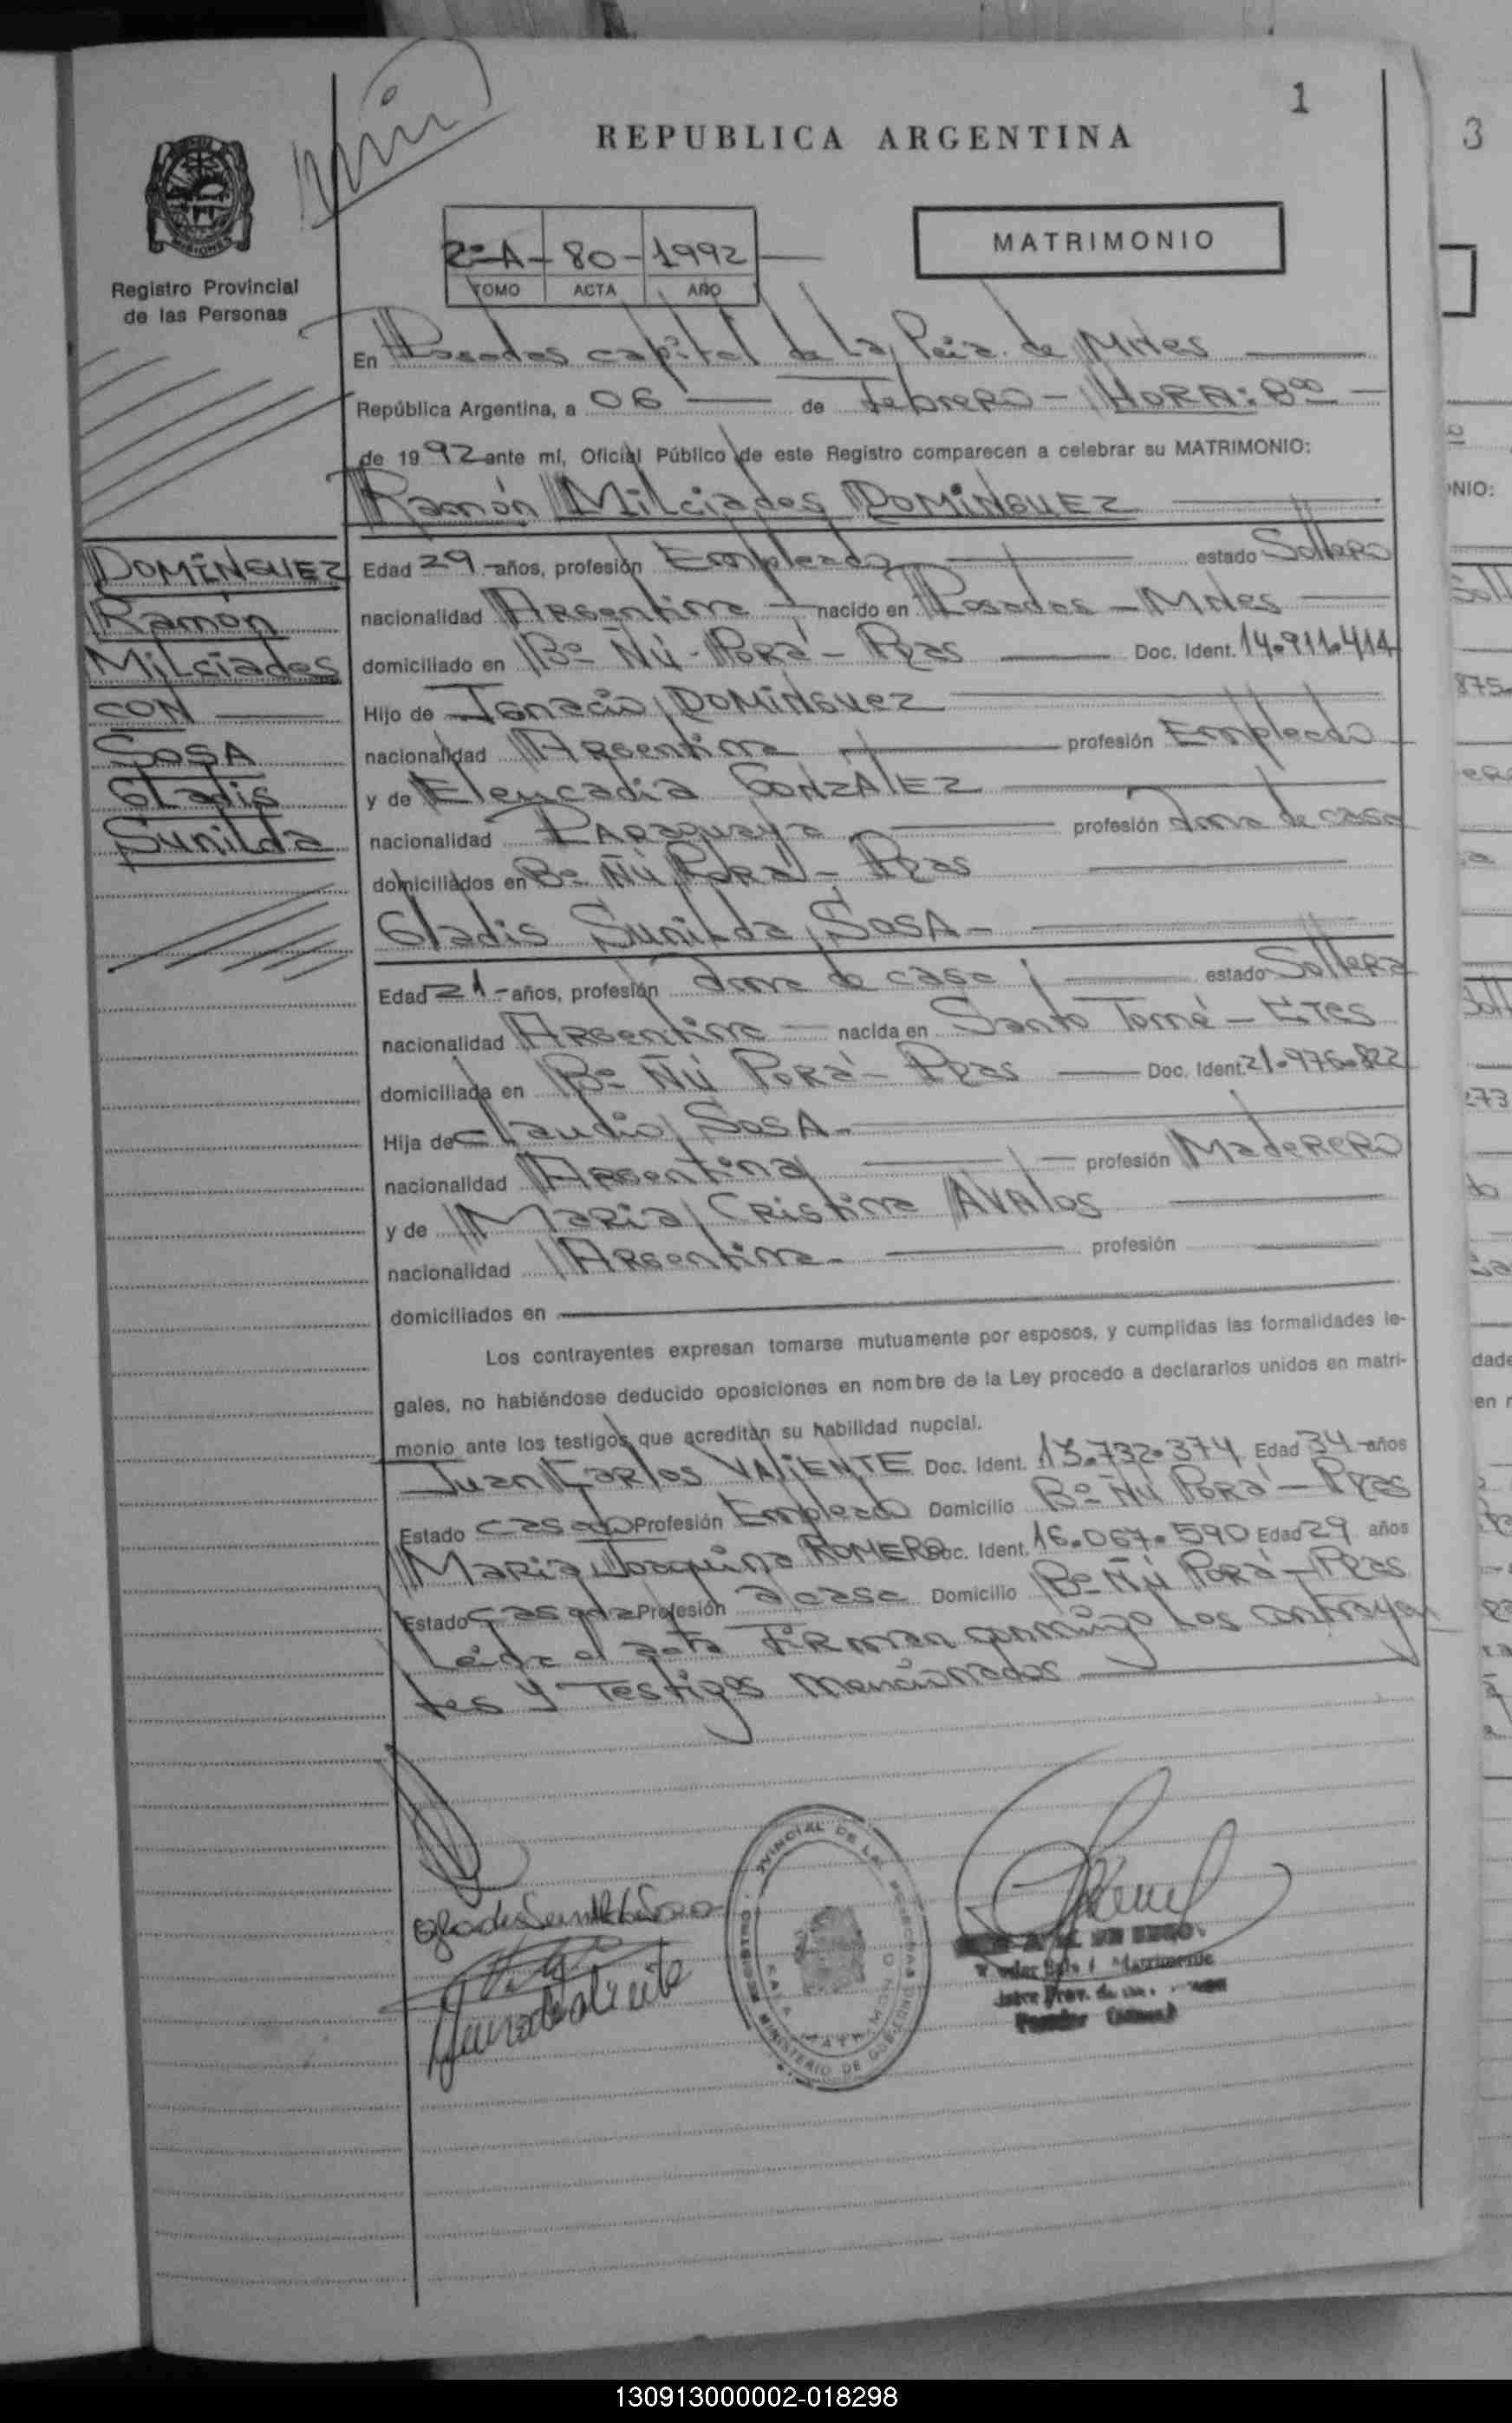 1
REPUBLICA ARGENTINA
3
2º A - 80 - 1992
TOMO ACTA AÑO
MATRIMONIO
MISIONES
Registro Provincial
de las Personas
En Posadas capital de la Pcia. de Mnes
República Argentina, a 06 de Febrero - HORA: 8⁰⁰ -
de 1992 ante mí, Oficial Público de este Registro comparecen a celebrar su MATRIMONIO:
Ramón Milciades DOMINGUEZ
DOMÍNGUEZ
Ramón
Milciades
CON
SOSA
Gladis
Sunilda
Edad 29 - años, profesión Empleado estado Soltero
nacionalidad Argentina nacido en Posadas - Mnes
domiciliado en Bº Ñú - Porá - Pdas Doc. Ident. 14.911.414
Hijo de Ignacio DOMINGUEZ
nacionalidad Argentina profesión Empleado
y de Eleucadia GONZÁLEZ
nacionalidad Paraguaya profesión Ama de casa
domiciliados en Bº Ñú Porá - Pdas
Gladis Sunilda SOSA -
Edad 21 - años, profesión Ama de casa estado Soltera
nacionalidad Argentina nacida en Santo Tomé - Ctes
domiciliada en Bº Ñú Porá - Pdas Doc. Ident. 21.976.822
Hija de Claudio SOSA -
nacionalidad Argentina profesión Maderero
y de Maria Cristina AVAlos
nacionalidad Argentina - profesión
domiciliados en
Los contrayentes expresan tomarse mutuamente por esposos, y cumplidas las formalidades le-
gales, no habiéndose deducido oposiciones en nombre de la Ley procedo a declararlos unidos en matri-
monio ante los testigos que acreditan su habilidad nupcial.
Juan Carlos VALIENTE Doc. Ident. 13.732.374 Edad 34 - años
Estado casado Profesión Empleado Domicilio Bº Ñú Porá - Pdas
Maria Joaquina ROMERO Doc. Ident. 16.067.590 Edad 29 años
Estado casada Profesión a casa Domicilio Bº Ñú Porá - Pdas
Leída el acta firman conmigo los contrayen
tes y Testigos mencionados
REGISTRO PROVINCIAL DE LAS PERSONAS
MINISTERIO DE GOBIERNO
130913000002-018298